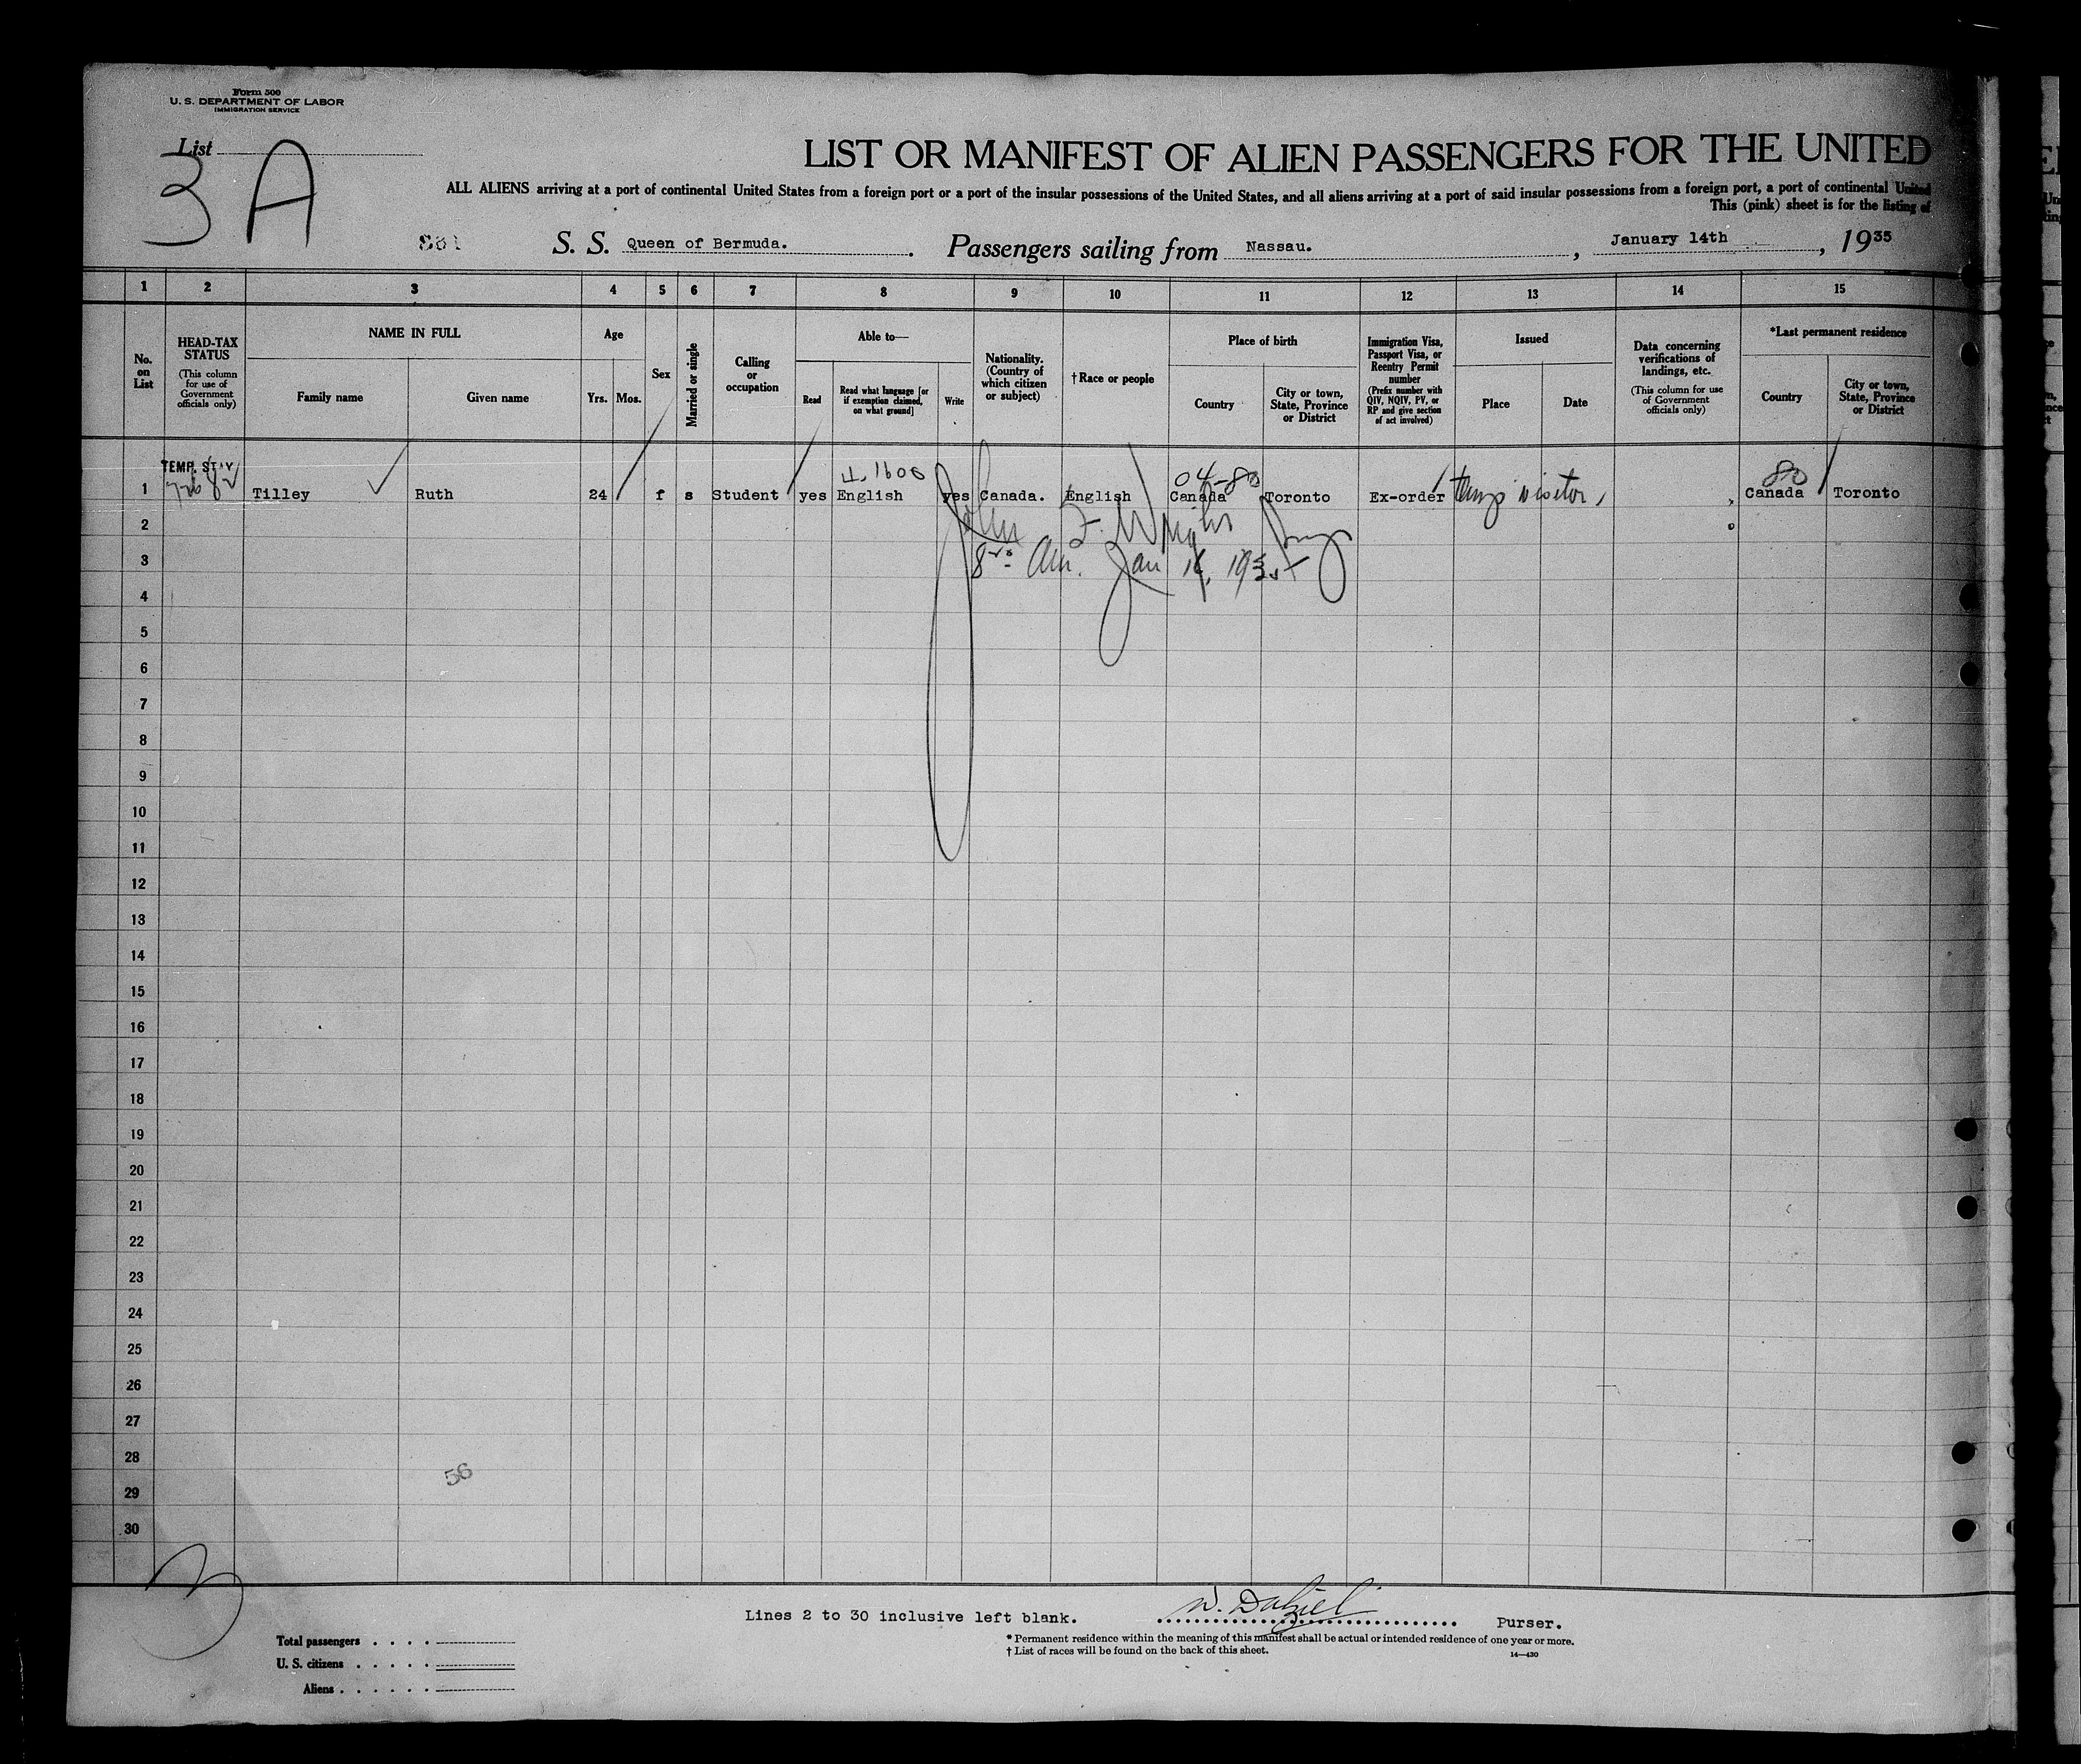 Form 500
U. S. DEPARTMENT OF LABOR
IMMIGRATION SERVICE
List
3 A
LIST OR MANIFEST OF ALIEN PASSENGERS FOR THE UNITED
ALL ALIENS arriving at a port of continental United States from a foreign port or a port of the insular possessions of the United States, and all aliens arriving at a port of said insular possessions from a foreign port, a port of continental United
This (pink) sheet is for the listing of
S. S. Queen of Bermuda. Passengers sailing from Nassau. , January 14th , 1935
1 2 3 4 5 6 7 8 9 10 11 12 13 14 15
No. on List
HEAD-TAX STATUS
(This column for use of Government officials only)
NAME IN FULL
Family name
Given name
Age
Yrs. Mos.
Sex
Married or single
Calling or occupation
Able to—
Read
Read what language [or if exemption claimed, on what ground]
Write
Nationality. (Country of which citizen or subject)
† Race or people
Place of birth
Country
City or town, State, Province or District
Immigration Visa, Passport Visa, or Reentry Permit number
(Prefix number with QIV, NQIV, PV, or RP and give section of act involved)
Issued
Place
Date
Data concerning verifications of landings, etc.
(This column for use of Government officials only)
*Last permanent residence
Country
City or town, State, Province or District
TEMP. STAY
1600 04-80 80
1 Tilley Ruth 24 f s Student yes English yes Canada. English Canada Toronto Ex-order visitor Canada Toronto
2
John F. Wright
3
Jan 1935
4
5
6
7
8
9
10
11
12
13
14
15
16
17
18
19
20
21
22
23
24
25
26
27
28
56
29
30
Lines 2 to 30 inclusive left blank. W. Dalziel Purser.
Total passengers . . . .
U. S. citizens . . . . .
Aliens . . . . . .
* Permanent residence within the meaning of this manifest shall be actual or intended residence of one year or more.
† List of races will be found on the back of this sheet.
14—430